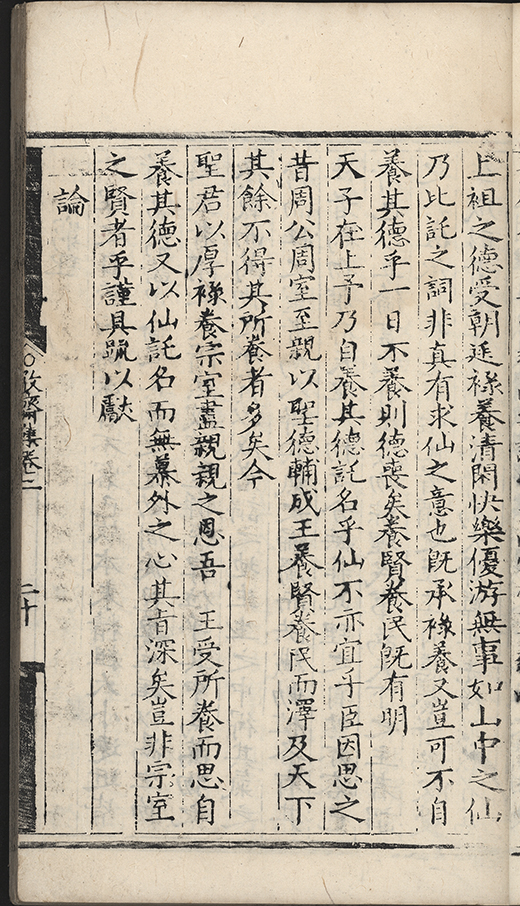 上祖之德受朝廷祿養清閑快樂優游無事如山中之仙
乃比託之詞非真有求仙之意也既承祿養又豈可不自
養其德乎一日不養則德喪矣養賢養民既有明
天子在上予乃自養其德託名乎仙不亦宜乎臣因思之
昔周公周室至親以聖德輔成王養賢養民而澤及天下
其餘不得其所養者多矣今
聖君以厚祿養宗室盡親親之恩吾 王受所養而思自
養其德又以仙託名而無慕外之心其旨深矣豈非宗室
之賢者乎謹具疏以獻
論
齋集卷二
二十